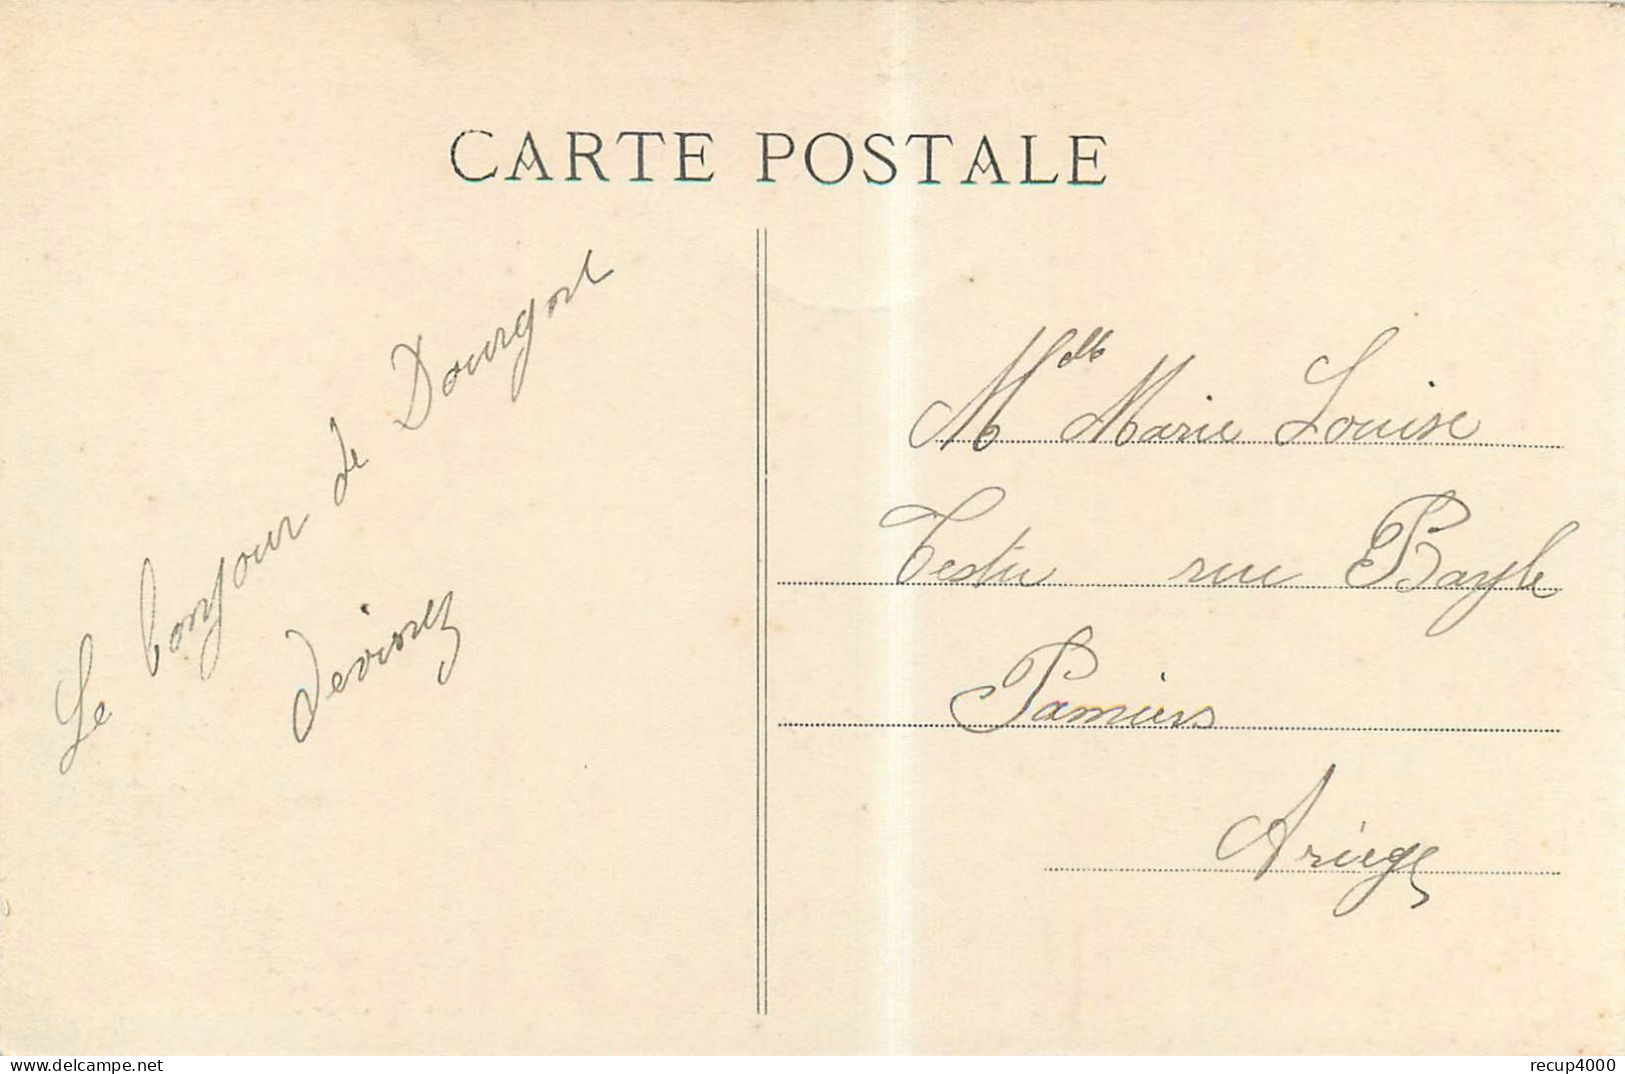 CARTE POSTALE
Le bonjour de Dourgort
Mlle Marie Louise
Testu rue Bayle
Pamiers
Ariège
www.delcampe.net
recup4000